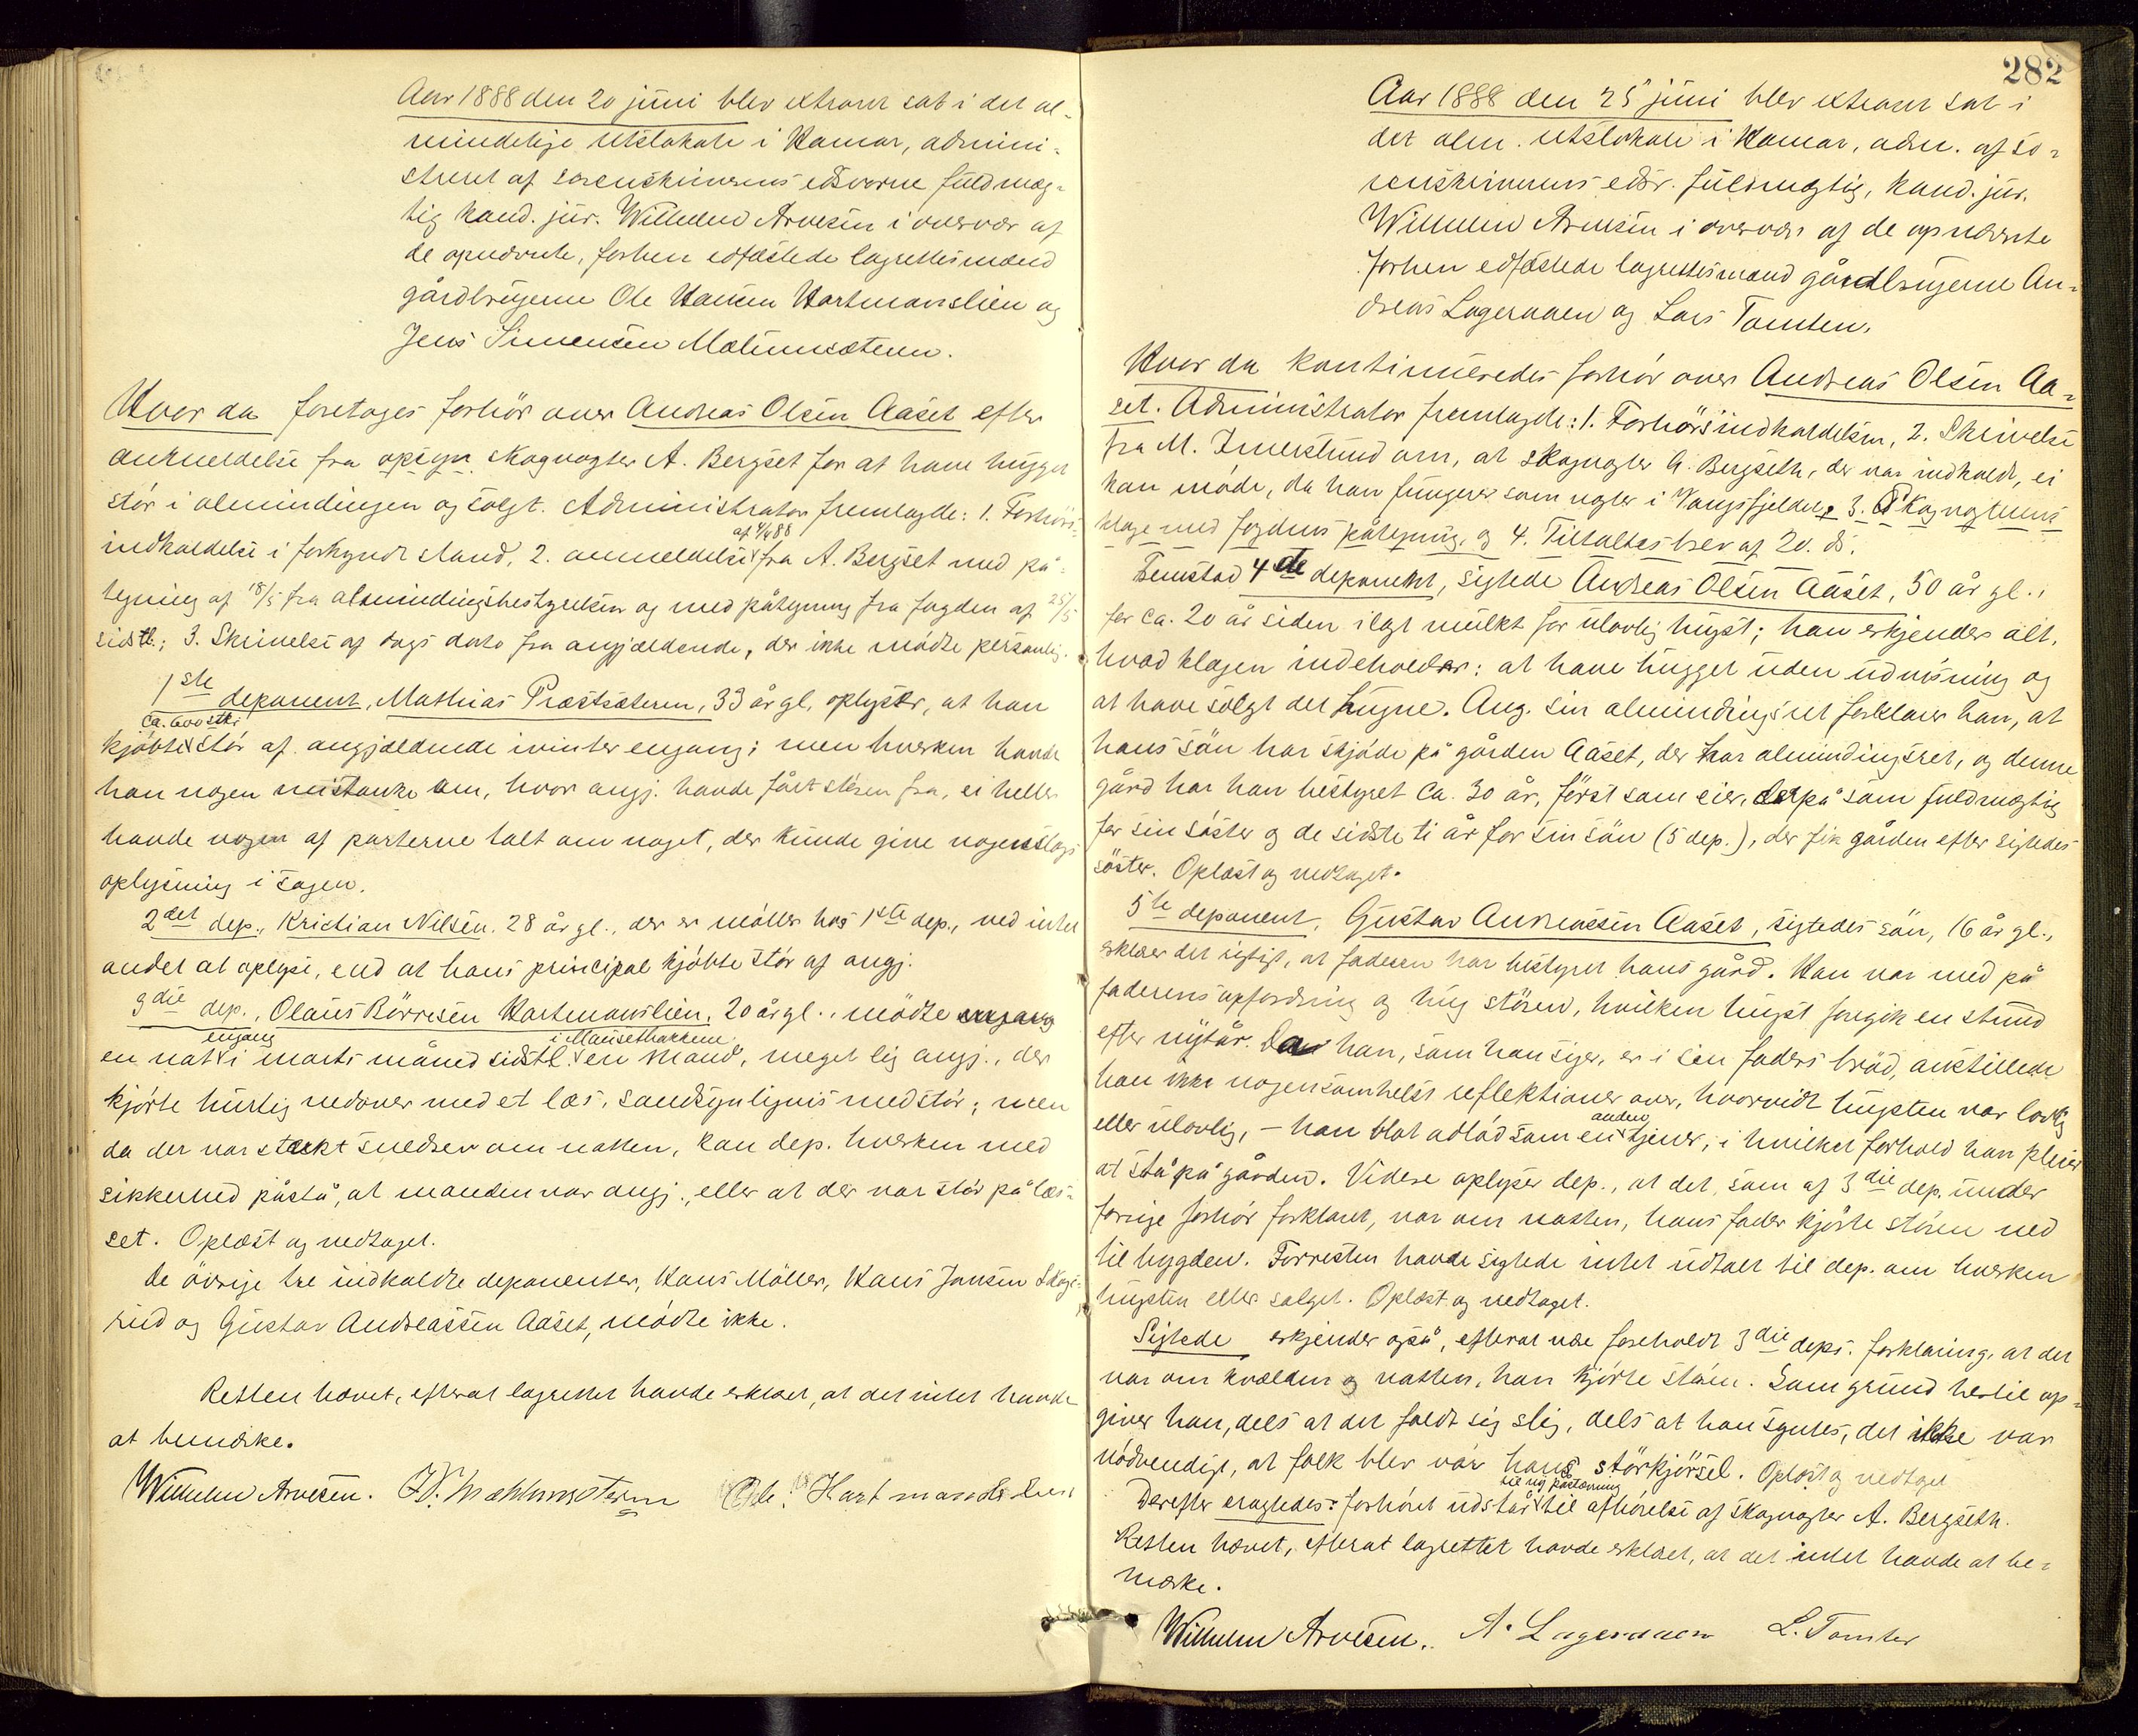 Aar 1888 den 20 juni blev extraret sat i det al-
mindelige retslokale i Hamar, admini-
streret af sorenskriverens edsvorne fuldmæg-
tig kand. jur. Wilhelm Arvesen i overvær af
de opnævnte, forhen edfæstede lagrettesmænd
gårdbrugerne Ole Hansen Hartmanslien og
Jens Simensen
Hvor da foretoges forhör over Andreas Olsen Aaset efter
anmeldelse fra opsyn skogvogter A. Bergset for at have hugget
stör i almindingen og solgt. Administrator fremlagde: 1. Forhörs-
indkaldelse i forkyndt stand, 2. anmeldelse af 4/4 88 fra A. Bergset med på-
tegning af 18/5 fra almindingsbestyrelsen og med påtegning fra fogden af 25/5
sidstl.; 3. Skrivelse af dags dato fra angjældende, der ikke mödte personlig.
1ste deponent, Mathias Præstsæteren, 33 år gl, oplyser, at han
kjöbte ca. 600 stkr stör af angjældende ivinter engang; men hverken havde
han nogen mistanke om, hvor angj. havde fået stören fra, ei heller
havde nogen af parterne talt om noget, der kunde give nogenslags
oplysning i sagen.
2det dep., Kristian Nilsen, 28 år gl., der er möller hos 1ste dep., ved intet
andet at oplyse, end at hans principal kjöbte stör af angj.
3die dep., Olaus Börresen Hartmanslien, 20 år gl., mödte engang
en nat engang i marts måned sidstl. i Mausetbakkene en mand, meget lig angj., der
kjörte hurtig nedover med et læs, sandsynligvis med stör; men
da der var stærkt snedrev om natten, kan dep. hverken med
sikkerhed påstå, at manden var angj., eller at der var stör på læs-
set. Oplæst og vedtaget.
De övrige tre indkaldte deponenter, Hans Möller, Hans Jansen Skogs-
rud og Gustav Andreassen Aaset, mödte ikke.
Retten hævet, efterat lagrettet havde erklæret, at det intet havde
at bemærke.
Wilhelm Arvesen. Ole H. Hartmanslien
282
Aar 1888 den 25 juni blev extraret sat i
det alm. retslokale i Hamar, adm. af so-
renskriverens edsv. fuldmægtig, kand. jur.
Wilhelm Arvesen i overvær af de opnævnte
forhen edfæstede lagrettesmænd gårdbrugerne An-
dreas Lageraaen og Lars Tomten.
Hvor da kontinueredes forhör over Andreas Olsen Aa-
set. Administrator fremlagde: 1. Forhörsindkaldelsen, 2. Skrivelse
fra M. Imerslund om, at skogvogter A. Bergseth, der var indkaldt, ei
kan möde, da han fungerer som vogter i Vangsfjeldet, 3. Skogvogterens
klage med fogdens påtegning, og 4. Tiltaltes brev af 20. ds.
Fremstod 4de deponent, sigtede Andreas Olsen Aaset, 50 år gl.,
for ca. 20 år siden ilagt mulkt for ulovlig hugst; han erkjender alt,
hvad klagen indeholder: at have hugget uden udvisning og
at have solgt det hugne. Ang. sin almindingsret forklarer han, at
hans sön har skjöde på gården Aaset, der har almindingsret, og denne
gård har han bestyret ca. 30 år, först som eier, derpå som fuldmægtig
for sin söster og de sidste ti år for sin sön (5 dep.), der fik gården efter sigtedes
söster. Oplæst og vedtaget.
5te deponent, Gustav Andreassen Aaset, sigtedes sön, 16 år gl.,
erklærer det rigtigt, at faderen har bestyret hans gård. Han var med på
faderens opfordring og hug stören, hvilken hugst foregik en stund
efter nytår. Da han, som han siger, er i sin faders bröd, anstillede
han ikke nogensomhelst reflektioner over, hvorvidt hugsten var lovlig
eller ulovlig, – han blot adlöd som en anden tjener, i hvilket forhold han pleier
at stå på gården. Videre oplyser dep., at det, som af 3die dep. under
forrige forhör forklaret, var om natten, hans fader kjörte stören ned
til bygden. Forresten havde sigtede intet udtalt til dep. om hverken
hugsten eller salget. Oplæst og vedtaget.
Sigtede erkjender også, efterat være foreholdt 3die deps. forklaring, at det
var om kvælden og natten, han kjörte stören. Som grund hertil op-
giver han, dels at det faldt sig slig, dels at han syntes, det ikke var
nödvendigt, at folk blev var hans störkjörsel. Oplæst og vedtaget
Derefter eragtedes: Forhöret udstår til ny berammelse til afhörelse af skogvogter A. Bergseth.
Retten hævet, efterat lagrettet havde erklæret, at det intet havde at be-
mærke.
Wilhelm Arvesen. A. Lageraaen L. Tomten